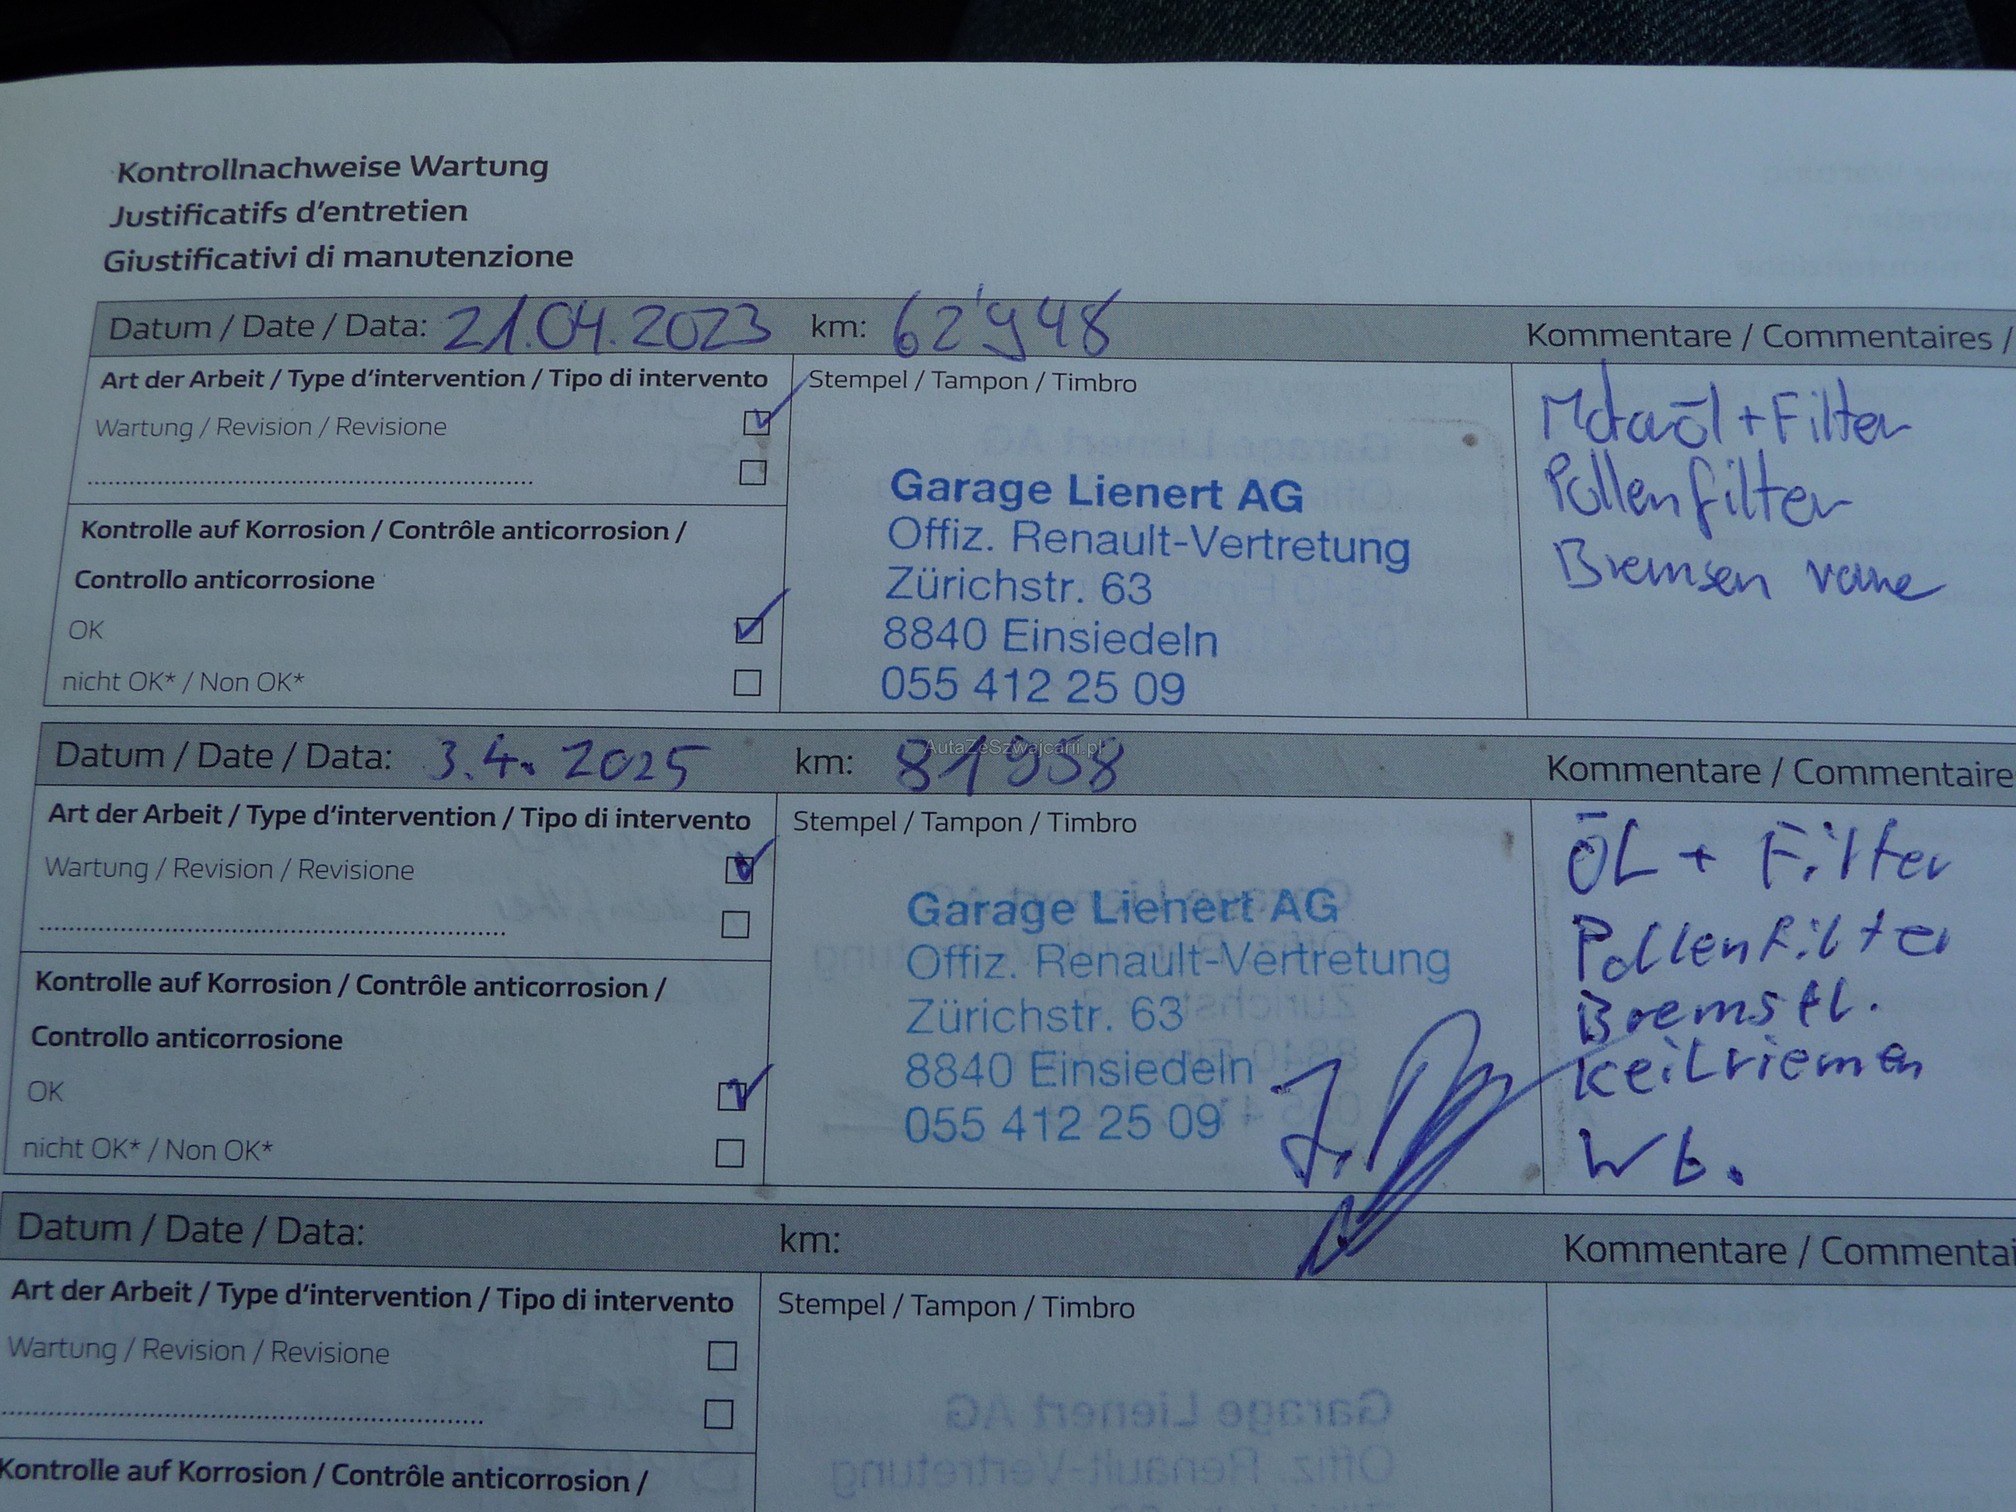 Kontrollnachweise Wartung
Justificatifs d'entretien
Giustificativi di manutenzione
Datum / Date / Data: 21.04.2023 km: 62'948 Kommentare / Commentaires /
Art der Arbeit / Type d'intervention / Tipo di intervento Stempel / Tampon / Timbro
Wartung / Revision / Revisione
Motoröl + Filter
Pollenfilter
Bremsen vorne
Garage Lienert AG
Offiz. Renault-Vertretung
Zürichstr. 63
8840 Einsiedeln
055 412 25 09
Kontrolle auf Korrosion / Contrôle anticorrosion /
Controllo anticorrosione
OK
nicht OK* / Non OK*
Datum / Date / Data: 3.4. 2025 km: 81958 Kommentare / Commentaire
AutaZeSzwajcarii.pl
Art der Arbeit / Type d'intervention / Tipo di intervento Stempel / Tampon / Timbro
Wartung / Revision / Revisione
ÖL + Filter
Pollenfilter
Bremsfl.
Keilriemen
Garage Lienert AG
Offiz. Renault-Vertretung
Zürichstr. 63
8840 Einsiedeln
055 412 25 09
Kontrolle auf Korrosion / Contrôle anticorrosion /
Controllo anticorrosione
OK
nicht OK* / Non OK*
Datum / Date / Data: km: Kommentare / Commentai
Art der Arbeit / Type d'intervention / Tipo di intervento Stempel / Tampon / Timbro
Wartung / Revision / Revisione
Kontrolle auf Korrosion / Contrôle anticorrosion /